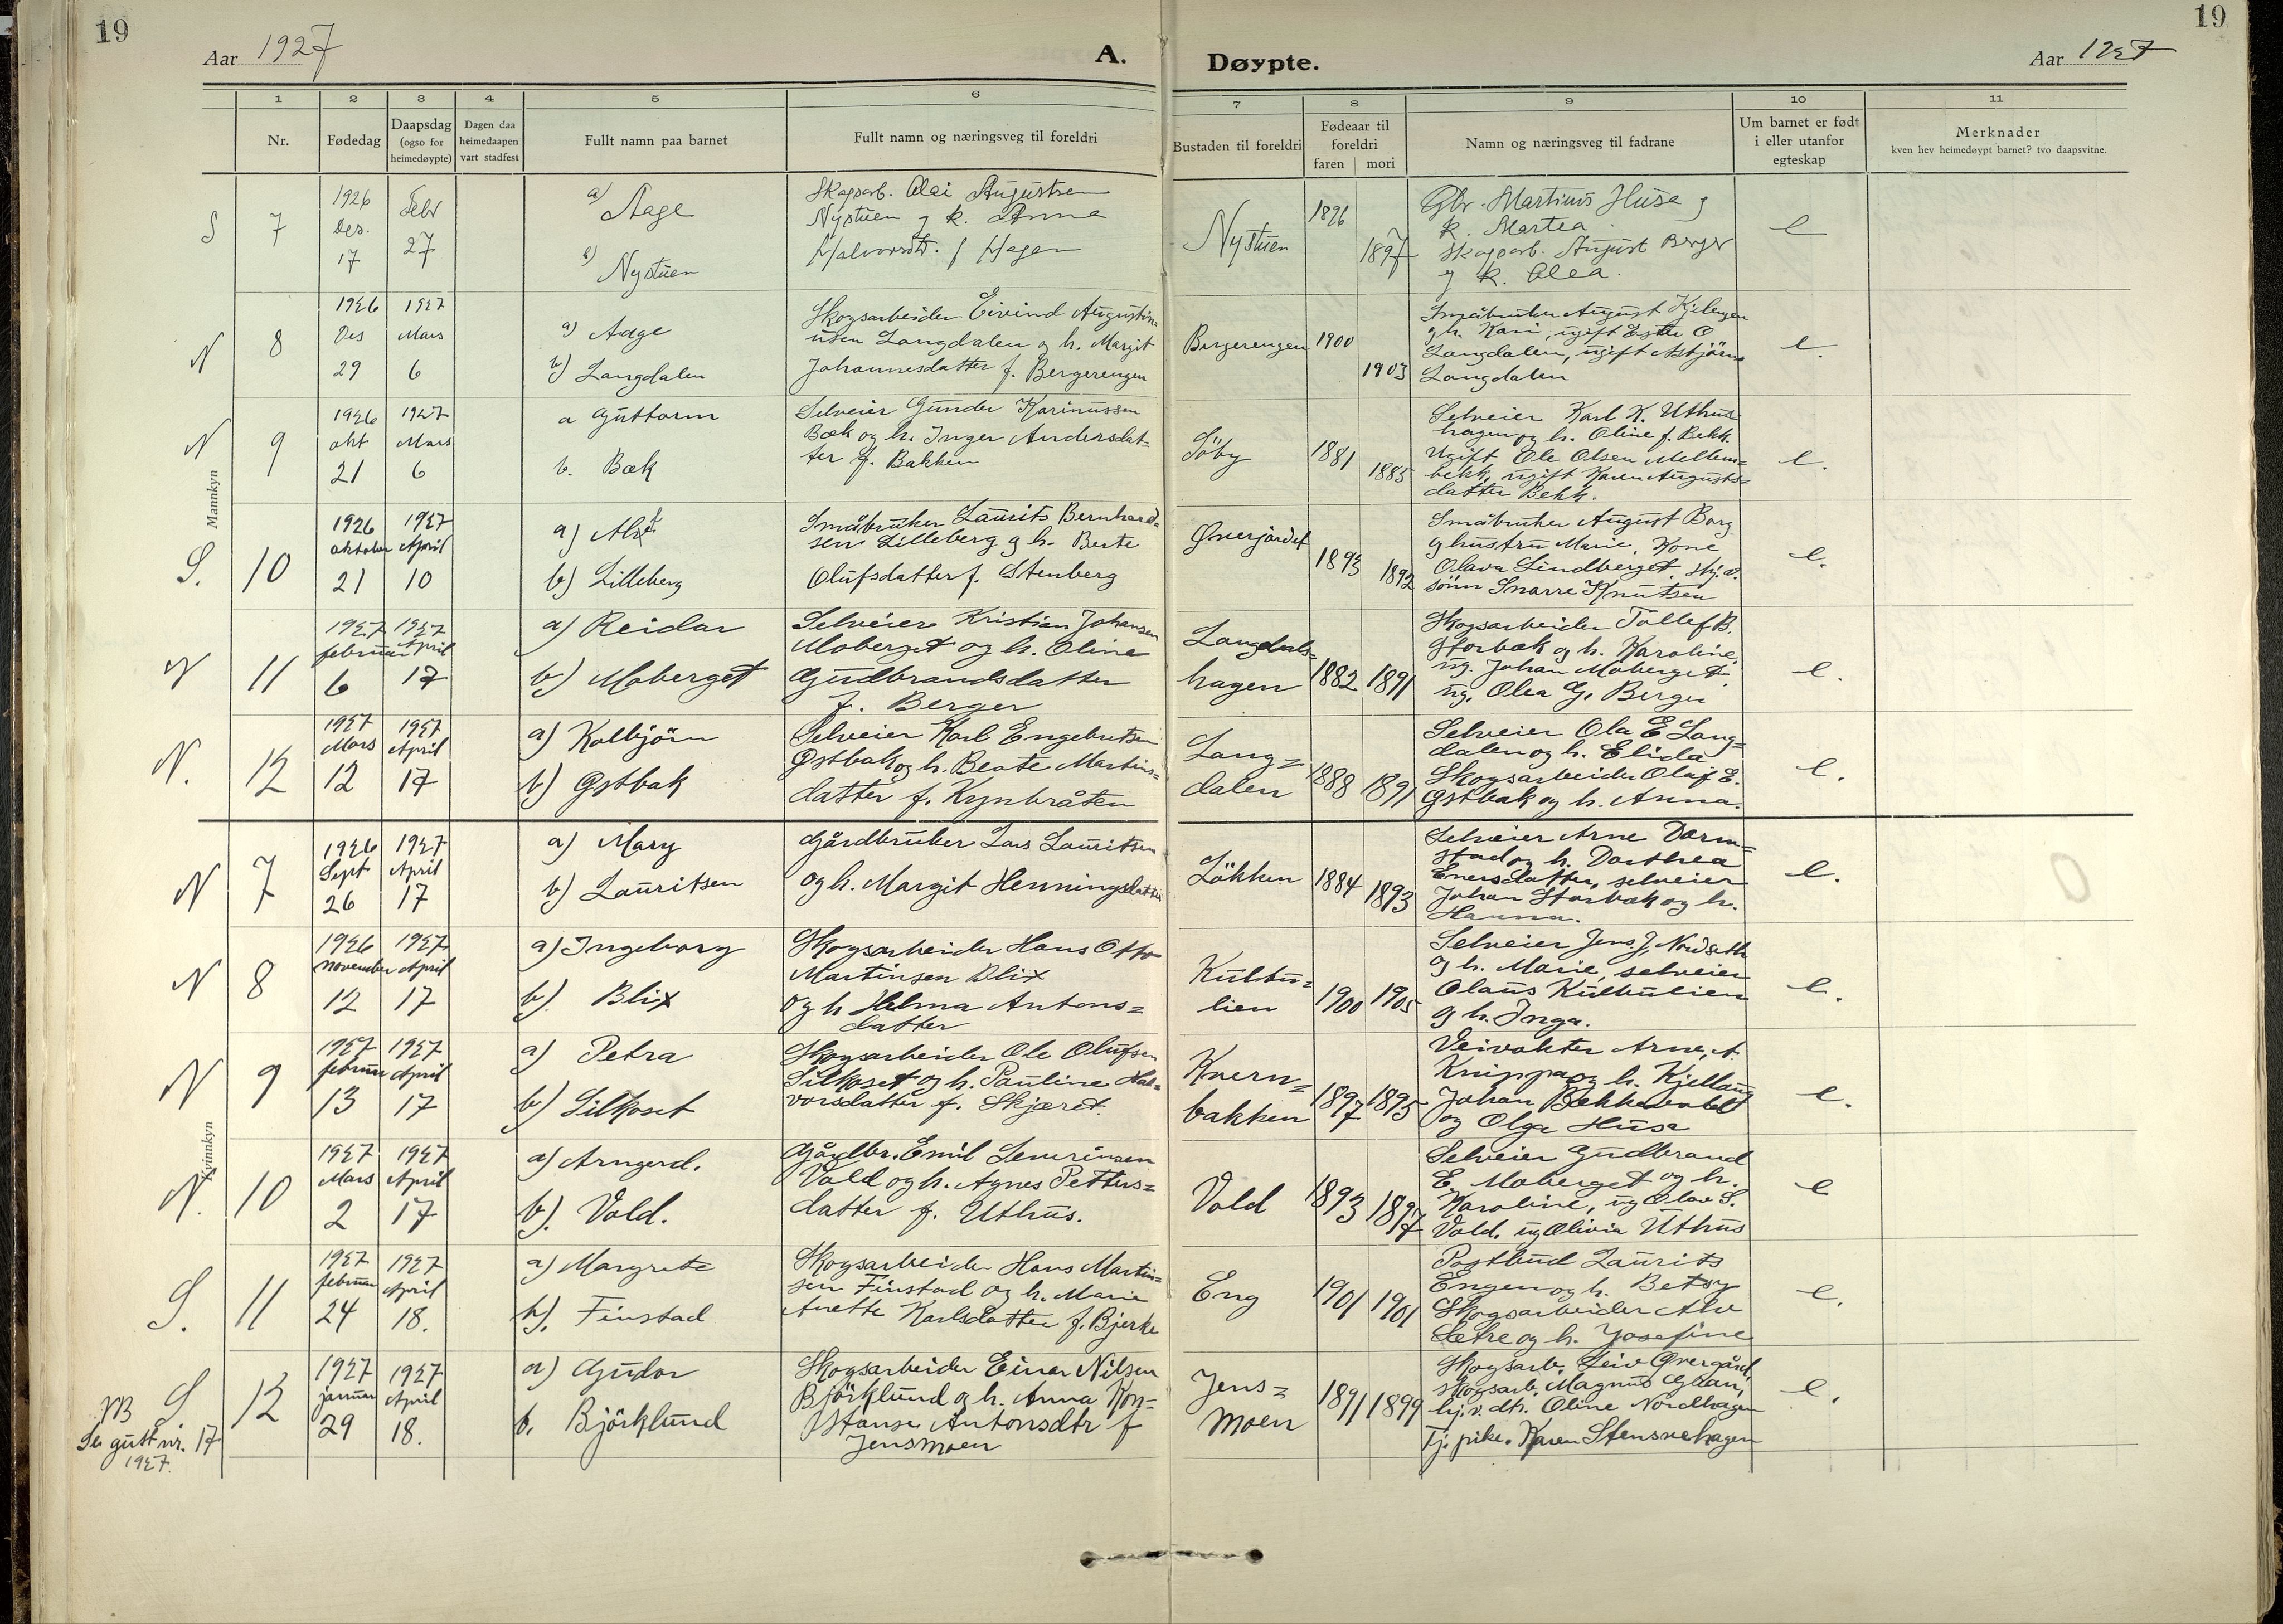 19
19
Aar 1927
A.
Døypte.
Aar 1927
1 2 3 4 5 6 7 8 9 10 11
Nr.
Fødedag
Daapsdag
(ogso for
heimedøypte)
Dagen daa
heimedaapen
vart stadfest
Fullt namn paa barnet
Fullt namn og næringsveg til foreldri
Bustaden til foreldri
Fødeaar til
foreldri
faren mori
Namn og næringsveg til fadrane
Um barnet er født
i eller utanfor
egteskap
Merknader
kven hev heimedøypt barnet? tvo daapsvitne.
Mannkyn
S 7
1926
Des.
17
Febr
27
a) Aage
b) Nystuen
Skogsarb. Olai Augustsen
Nystuen g k. Anna
Halvorsdt. f Hagen
Nystuen
1896
1897
Gbr. Martinus Husa g
k. Martea.
Skogsarb. August Berger
g k. Olea.
e
N 8
1926
Des
29
1927
Mars
6
a) Aage
b) Langdalen
Skogsarbeider Eivind Augustin
usen Langdalen g h. Margit
Johannesdatter f. Bergerengen
Bergerengen
1900
1903
Småbruker August Kjelengen
g h. Kari, ugift Ester O
Langdalen, ugift Asbjörn
Langdalen
e.
N 9
1926
okt
21
1927
Mars
6
a Guttorm
b. Bæk
Selveier Gunder Karinussen
Bæk og h. Inger Andersdat=
ter f. Bakken
Söby
1881
1885
Selveier Karl K. Uthus
hagen og h. Oline f. Bekk.
Ugift Ole Olsen Mellem=
bekk, ugift Karen Augusts=
datter Bekk.
e.
S. 10
1926
oktober
21
1927
April
10
a) Alf
b) Lilleberg
Småbruker Laurits Bernhard=
sen Lilleberg g h. Berte
Olufsdatter f. Stenberg
Øverjordet
1893
1892
Småbruker August Borg
g hustru Marie, Kone
Olava Lindberget, Hj. v.
sönn Snarre Knutsen
e.
N 11
1927
februar
6
1927
April
17
a) Reidar
b) Moberget
Selveier Kristian Johansen
Moberget og h. Oline
Gudbrandsdatter
f. Berger
Langdals=
hagen
1882 1891
Skogsarbeider Tollef B.
Storbæk og h. Karoline,
ug. Johan Moberget
ug. Olea G. Berger
e.
N. 12
1927
Mars
12
1927
April
17
a) Kolbjörn
b) Østbæk
Selveier Karl Engebretsen
Østbæk og h. Beate Martins=
datter f. Kynbråten
Lang=
dalen
1888 1891
Selveier Ola E Lang=
dalen og h. Elida
Skogsarbeider Olaf E.
Østbæk og h. Anna.
e.
Kvinnkyn
N 7
1926
Sept
26
1927
April
17
a) Mary
b) Lauritsen
Gårdbruker Lars Lauritsen
og h. Margit Henningsdatter
Lökken
1884
1893
Selveier Arne Dorm=
stad og h. Dorthea
Enersdatter, selveier
Johan Storbæk og h.
Hanna.
e.
N 8
1926
November
12
1927
April
17
a) Ingeborg
b) Blix
Skogsarbeider Hans Otto
Martinsen Blix
og h Helma Antons=
datter
Kulbu=
lien
1900 1905
Selveier Jens. J. Nordseth
og h. Marie, selveier
Olaus Kulbulien
g h. Inga.
e.
N 9
1927
februar
13
1927
April
17
a) Petra
b) Silkoset
Skogsarbeider Ole Olufsen
Silkoset og h. Pauline Hal=
vorsdatter f. Skjæret.
Kvern=
bakken
1897 1895
Veivokter Arne A.
Knippa og h. Kjellaug
Johan Bekkevold
og Olga Husa
e.
N. 10
1927
Mars
2
1927
April
17
a) Arngerd.
b). Vold.
Gårdbr. Emil Severinsen
Vold og h. Agnes Petters=
datter f. Uthus.
Vold
1893
1897
Selveier Gudbrand
E. Moberget og h.
Karoline, ug Olav S.
Vold. ug Olivia Uthus
e
S. 11
1927
februar
24
1927
April
18.
a) Margrete
b). Finstad
Skogsarbeider Hans Martin=
sen Finstad og h. Marie
Anette Karlsdatter f. Bjerke
Eng
1901 1901
Postbud Laurits
Engen og h. Betsy
Skogsarbeider Alv
Sætre og h. Josefine
e.
S 12
NB
Se gutt nr. 17
1927.
1927
januar
29
1927
April
18.
a) Gudor
b. Björklund
Skogsarbeider Einar Nilsen
Björklund og h. Anna Kon=
stanse Antonsdtr f
Jensmoen
Jens=
moen
1891 1899
Skogsarb. Leiv Øvergård,
skogsarb. Magnus Graan,
hj. v. dtr. Oline Nordhagen
Tj. pike. Karen Stensnehagen
e.